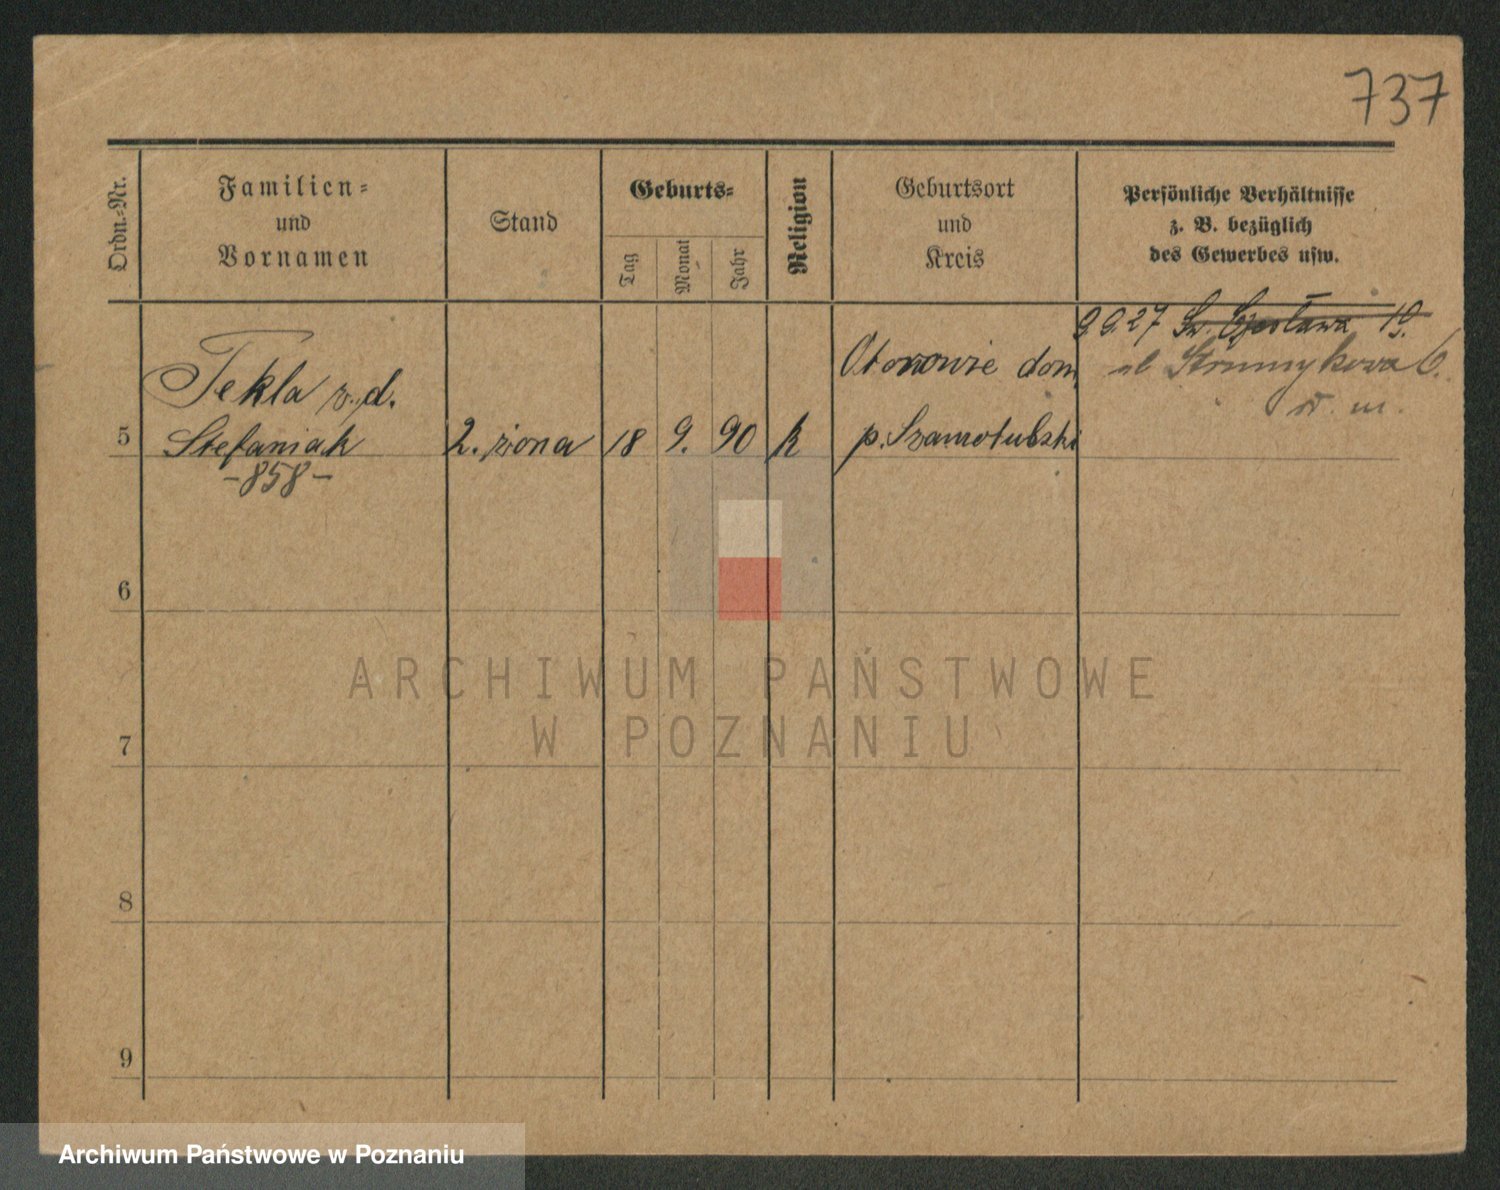 737
Ordn.-Nr.
Familien-
und
Vornamen
Stand
Geburts-
Tag
Monat
Jahr
Religion
Geburtsort
und
Kreis
Persönliche Verhältnisse
z. B. bezüglich
des Gewerbes usw.
9.9.27 Św. Czesława 19.
ul Strumykowa 6.
Tekla z. d.
Otorowie dom
5 Stefaniak 2. żona 18 9. 90 k p. Szamotulski
-858-
6
ARCHIWUM PAŃSTWOWE
W POZNANIU
7
8
9
Archiwum Państwowe w Poznaniu